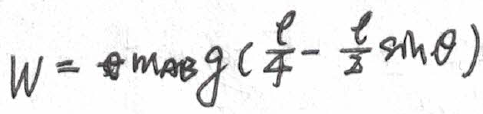 W = m_{AB} g ( \frac{l}{4} - \frac{l}{2} sin θ )